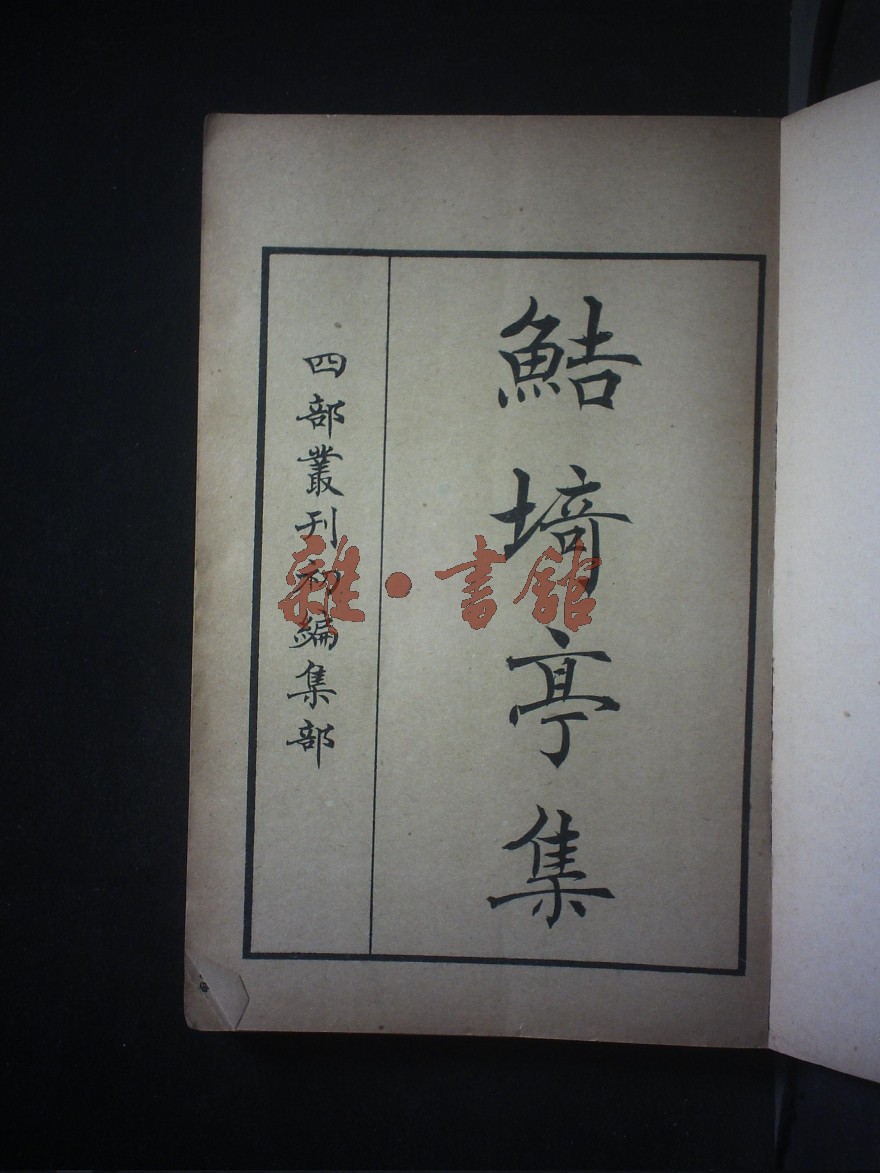 鮚埼亭集
四部叢刊初編集部
雜·書館